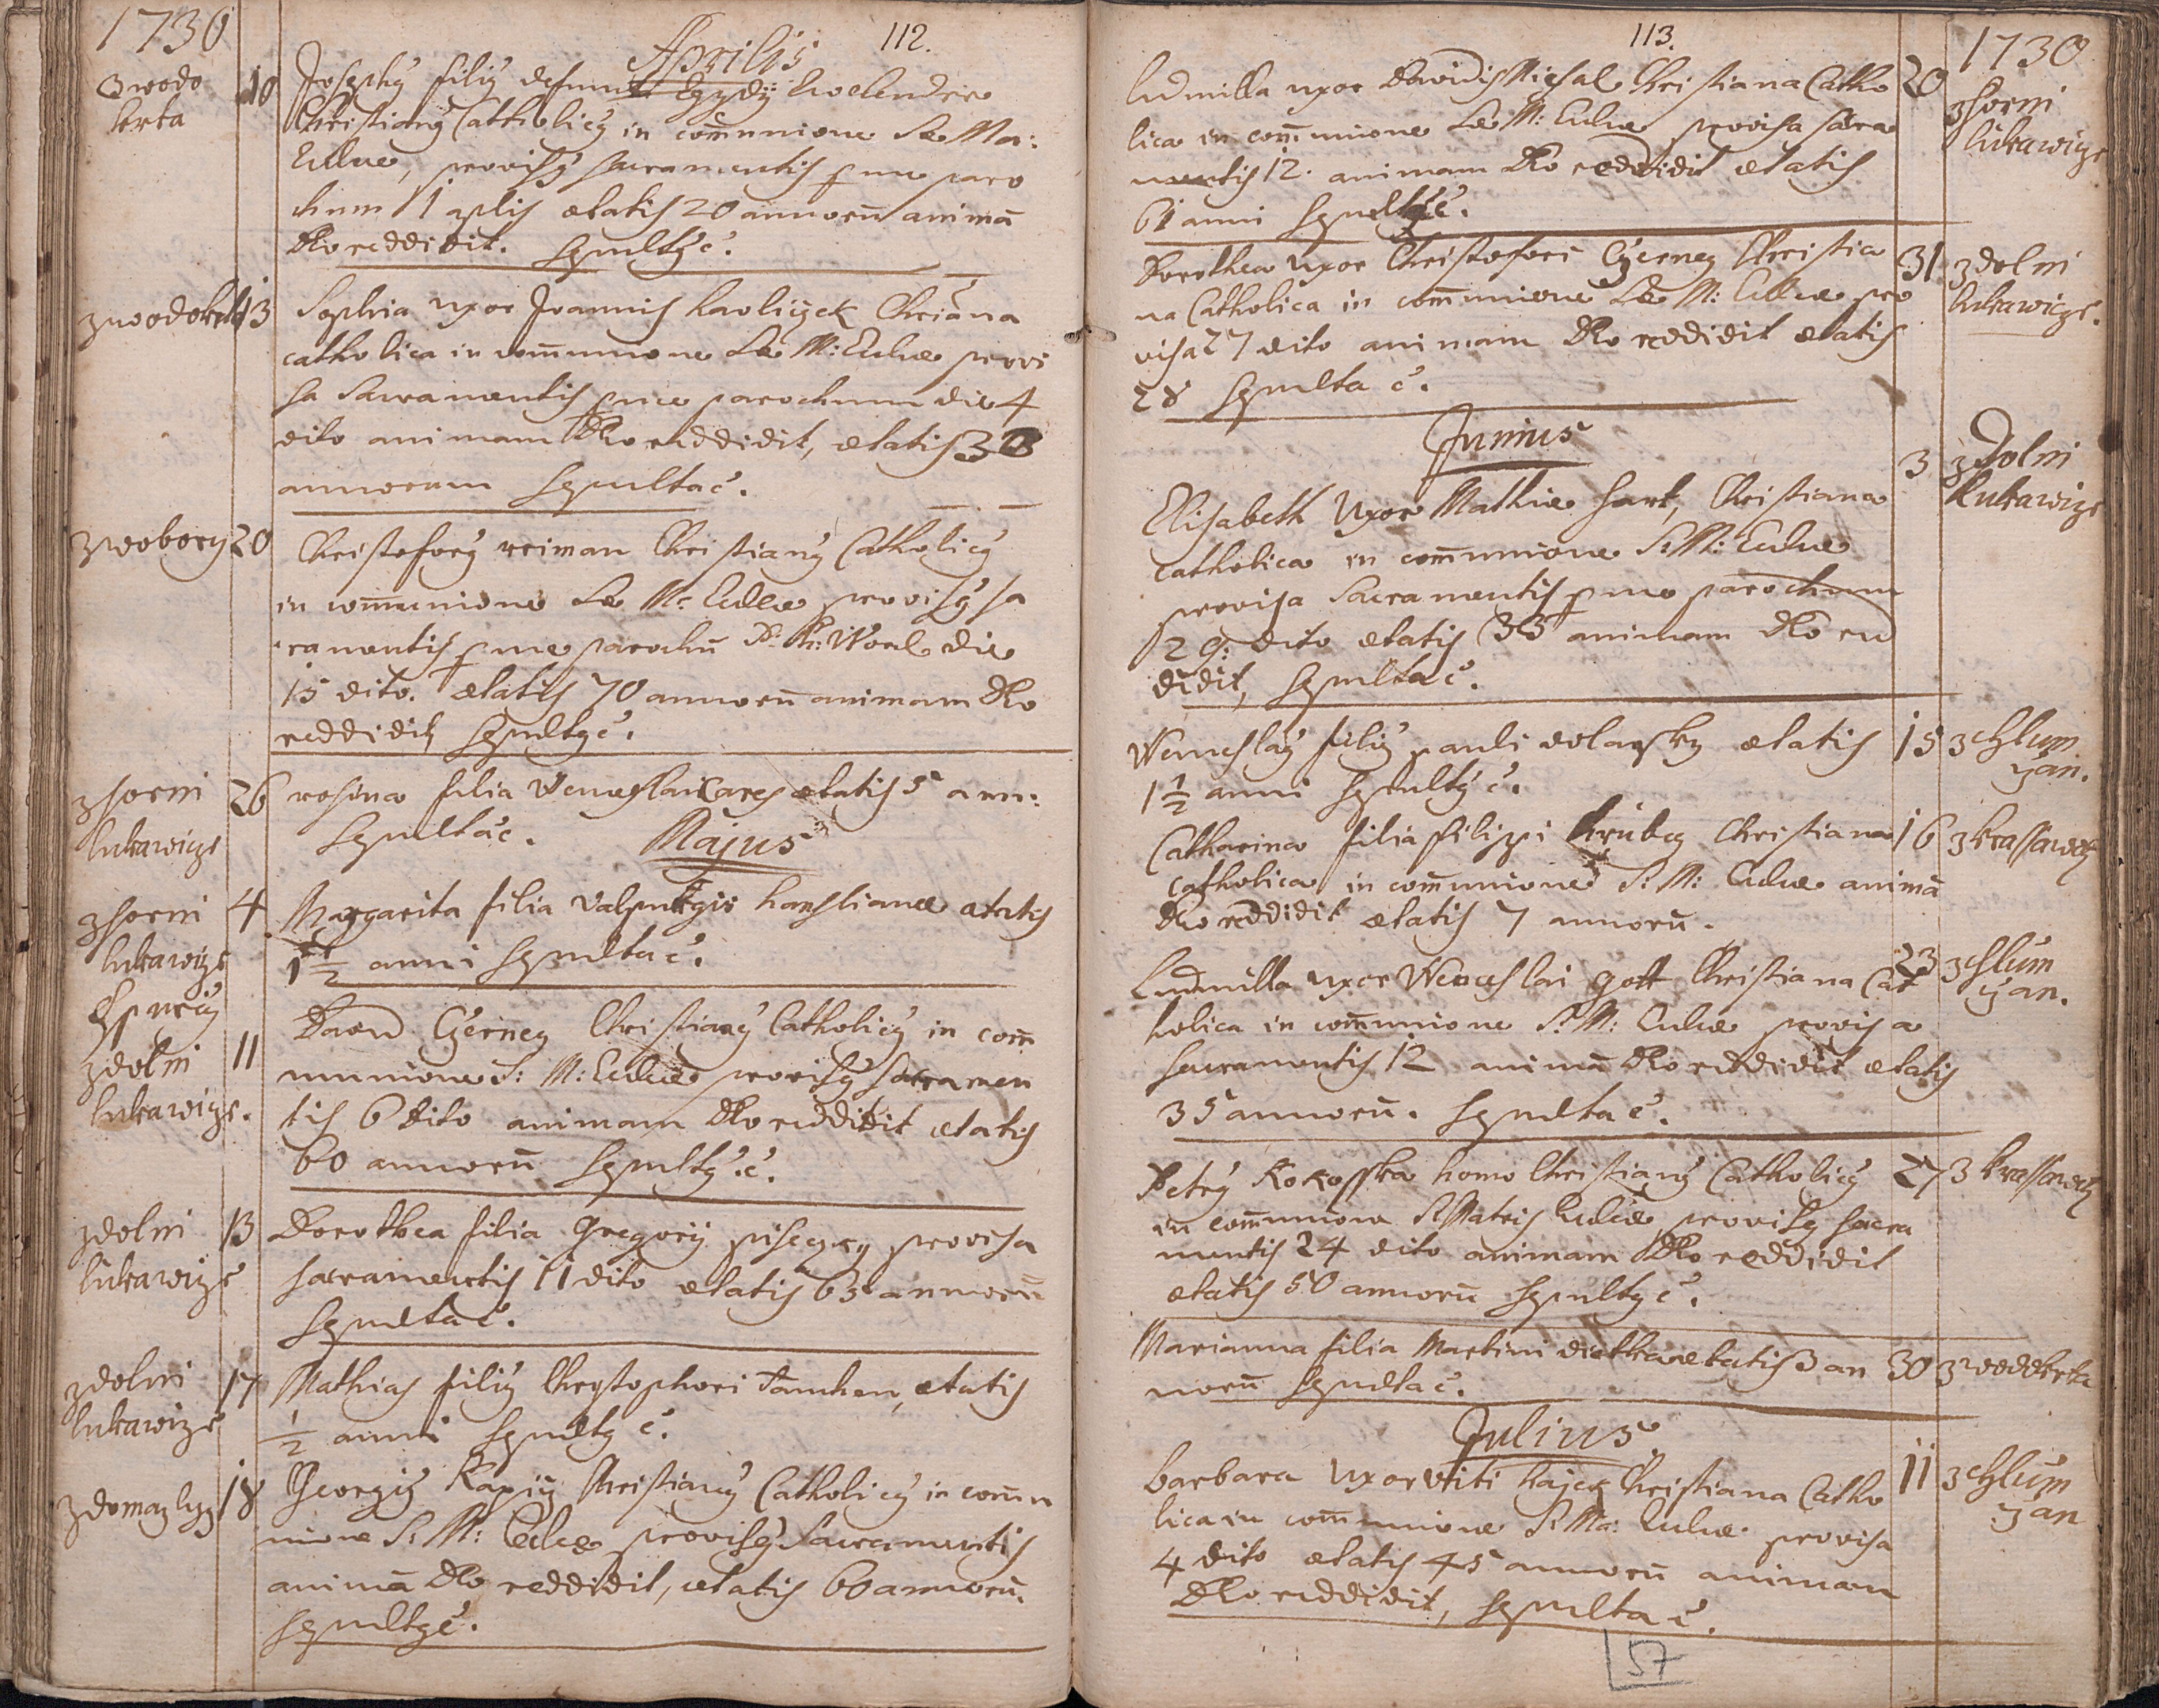 1730
Aprilis
112.
z wodo
kert a
10
Josephus filius defuncti Egydii
Christianus Catholicus in communione S. Ma:
Eccl&ae, provisus sacramentis p me paro
chum 1 aplis ætatis 20 annorū animā
Deo reddidit. Sepultus ē.
z wodokert
13
Sophia uxor Joannis havliczek Chriana
catholica in com̄unione S. M: Eccl&ae provi
sa Sacramentis p me parochum die 4
dito animam Deo reddidit, ætatis
annorum Sepulta ē.
z wobory
20
Christoforus reiman Christianus Catholicus
in com̄unione S. M: Eccl&ae provisus sa
cramentis p me parochū die
15 dito. ætatis 70 annorū animam Deo
reddidit, Sepultus ē.
z horni
lukawicze
26
rosina filia Wenceslai Cares ætatis 5 ann:
Sepulta ē.
Majus
z horni
lukawize
4
Margarita filia Valpurgis hansliance ætatis
1 1/2 anni Sepulta ē.
z dolni
lukawize.
11
David Czerney Christianus Catholicus in com̄
munione S: M: Eccl&ae provisus sacramen
tis 6 dito animam Deo reddidit ætatis
60 annorū Sepultus ē.
z dolni
lukawize
13
Dorothea filia Gregorii pisczky provisa
sacramentis 11 dito ætatis 63 annorū
Sepulta ē.
z dolni
lukawize
17
Mathias filius Chrystophori Tauchen, ætatis
1/2 anni Sepultus ē.
z domazlyz
18
Georgius Kapiy Christianus Catholicus in com̄u
nione S: M: Eccl&ae provisus Sacramentis
animā Deo reddidit, ætatis 60 annorū.
Sepultus ē.
113.
1730
ludmilla uxor Davidis Misal Christiana Catho
20
z horni
lukawize
lica in com̄unione S. M: Eccl&ae provisa sacra
mentis 12. animam Deo reddidit ætatis
61 anni Sepulta ē.
Dorothea uxor Christofori Czerney Christia
31
z dolni
lukawicze.
na Catholica in com̄unione S. M: Eccl&ae pro
visa 27 dito animam Deo reddidit ætatis
28 Sepulta ē.
Junius
3
z dolni
lukawize
Elisabeth Uxor Mathiæ hart, Christiana
catholica in com̄unione S: M: Eccl&ae
provisa Sacramentis p me parochum
29: dito ætatis 33 animam Deo red
didit, Sepulta ē.
Wenceslaus filius pauli dolansky ætatis
15
z Chlum
czan.
1 1/2 anni Sepultus ē.
Catharina filia filippi hrubey Christiana
16
z krassowcz
catholica in com̄unione S: M: Eccl&ae animā
Deo reddidit ætatis 7 annorū.
Ludmilla uxor Wenceslai gott Christiana Cat
23
z Chlum
czan.
holica in com̄unione S: M: Eccl&ae provisa
sacramentis 12 animā Deo reddidit ætatis
35 annorū. Sepulta ē.
Petrus Kokosska homo Christianus Catholicus
27
z krassowcz
in com̄unione S. Matris Eccl&ae provisus sacra
mentis 24 dito animam Deo reddidit
ætatis 50 annorū Sepultus ē.
Marianna filia Martini ætatis 3 an
30
z wodokerta
norū Sepulta ē.
Julius
barbara uxor Viti hajek Christiana Catho
11
z Chlum
czan
lica in com̄unione S: Ma: Eccl&ae provisa
4 dito ætatis 45 annorū animam
Deo reddidit, Sepulta ē.
57